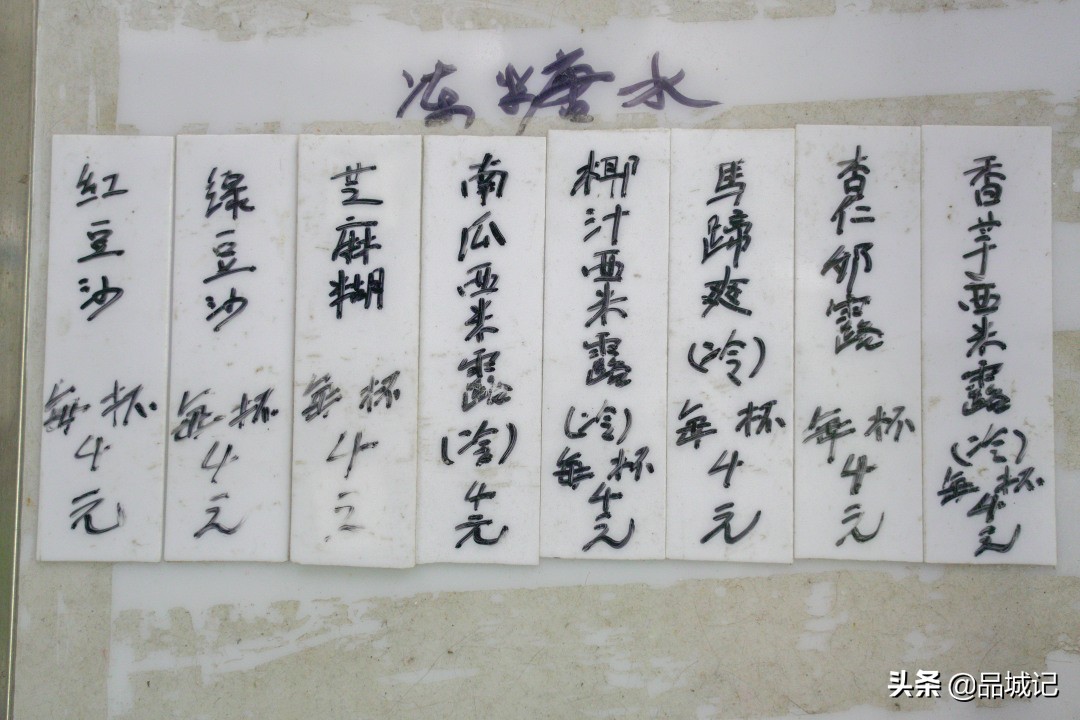 冻糖水
紅豆沙
每杯
4
元
綠豆沙
每杯
4
元
芝麻糊
每杯
4
元
南瓜西米露
(冷)
4
元
椰汁西米露
(冷)
每杯
4
元
馬蹄爽
(冷)
每杯
4
元
杏仁
露
每杯
4
元
香芋西米露
(冷)
每杯
4
元
头条 @品城记